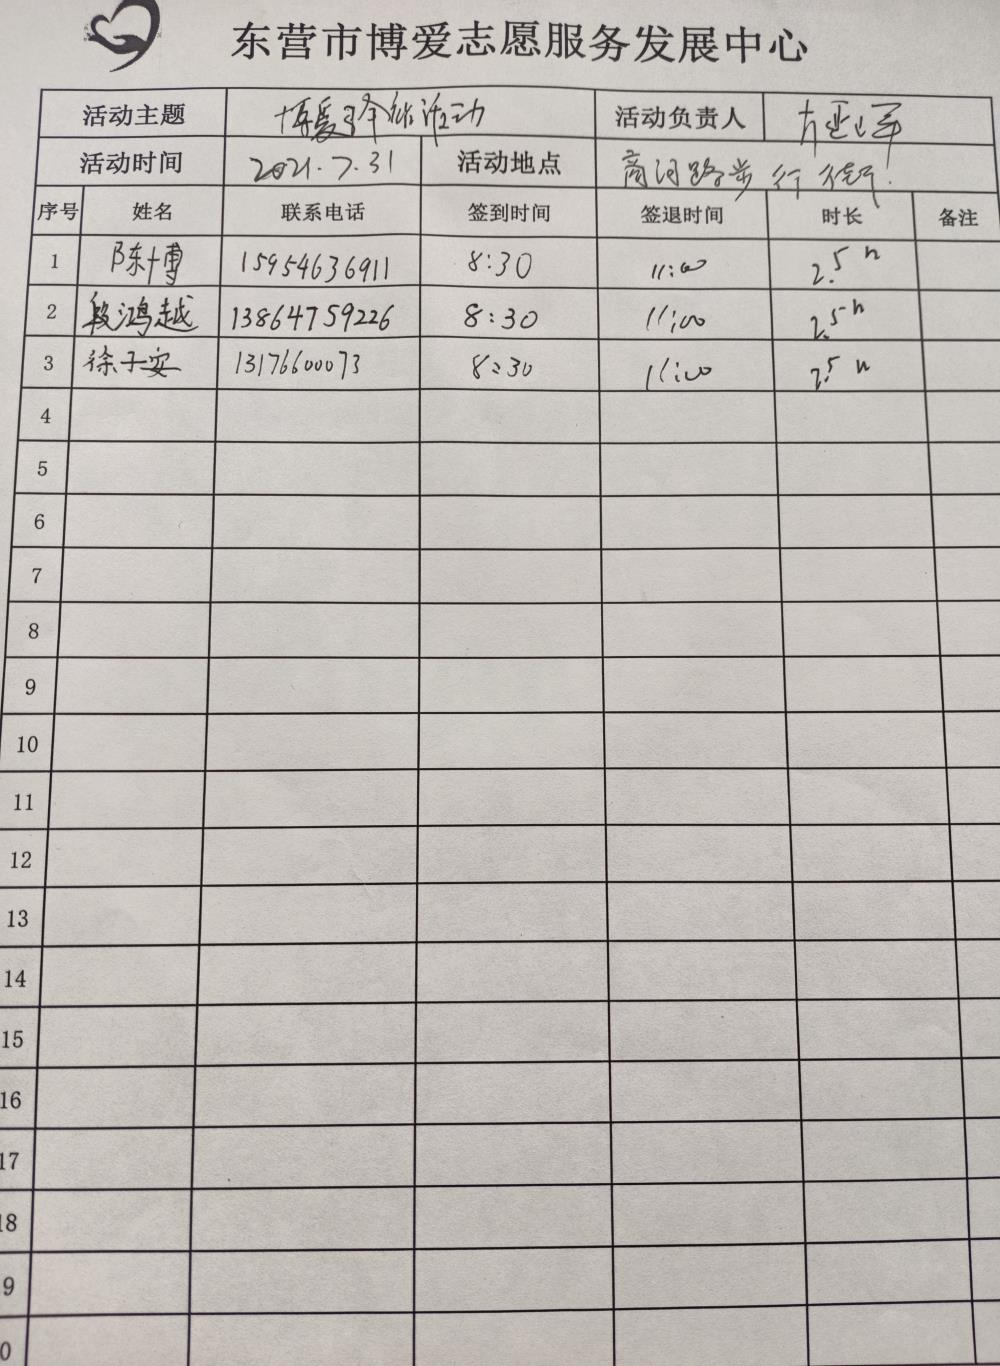 东营市博爱志愿服务发展中心
活动主题 博爱 活动 活动负责人
活动时间 2021.7.31 活动地点 商河路步行街
序号 姓名 联系电话 签到时间 签退时间 时长 备注
1 陈博 15954636911 8:30 11:00 2.5h
2 段鸿越 13864759226 8:30 11:00 2.5h
3 徐子安 13176600073 8:30 11:00 2.5h
4
5
6
7
8
9
10
11
12
13
14
15
16
17
18
9
0